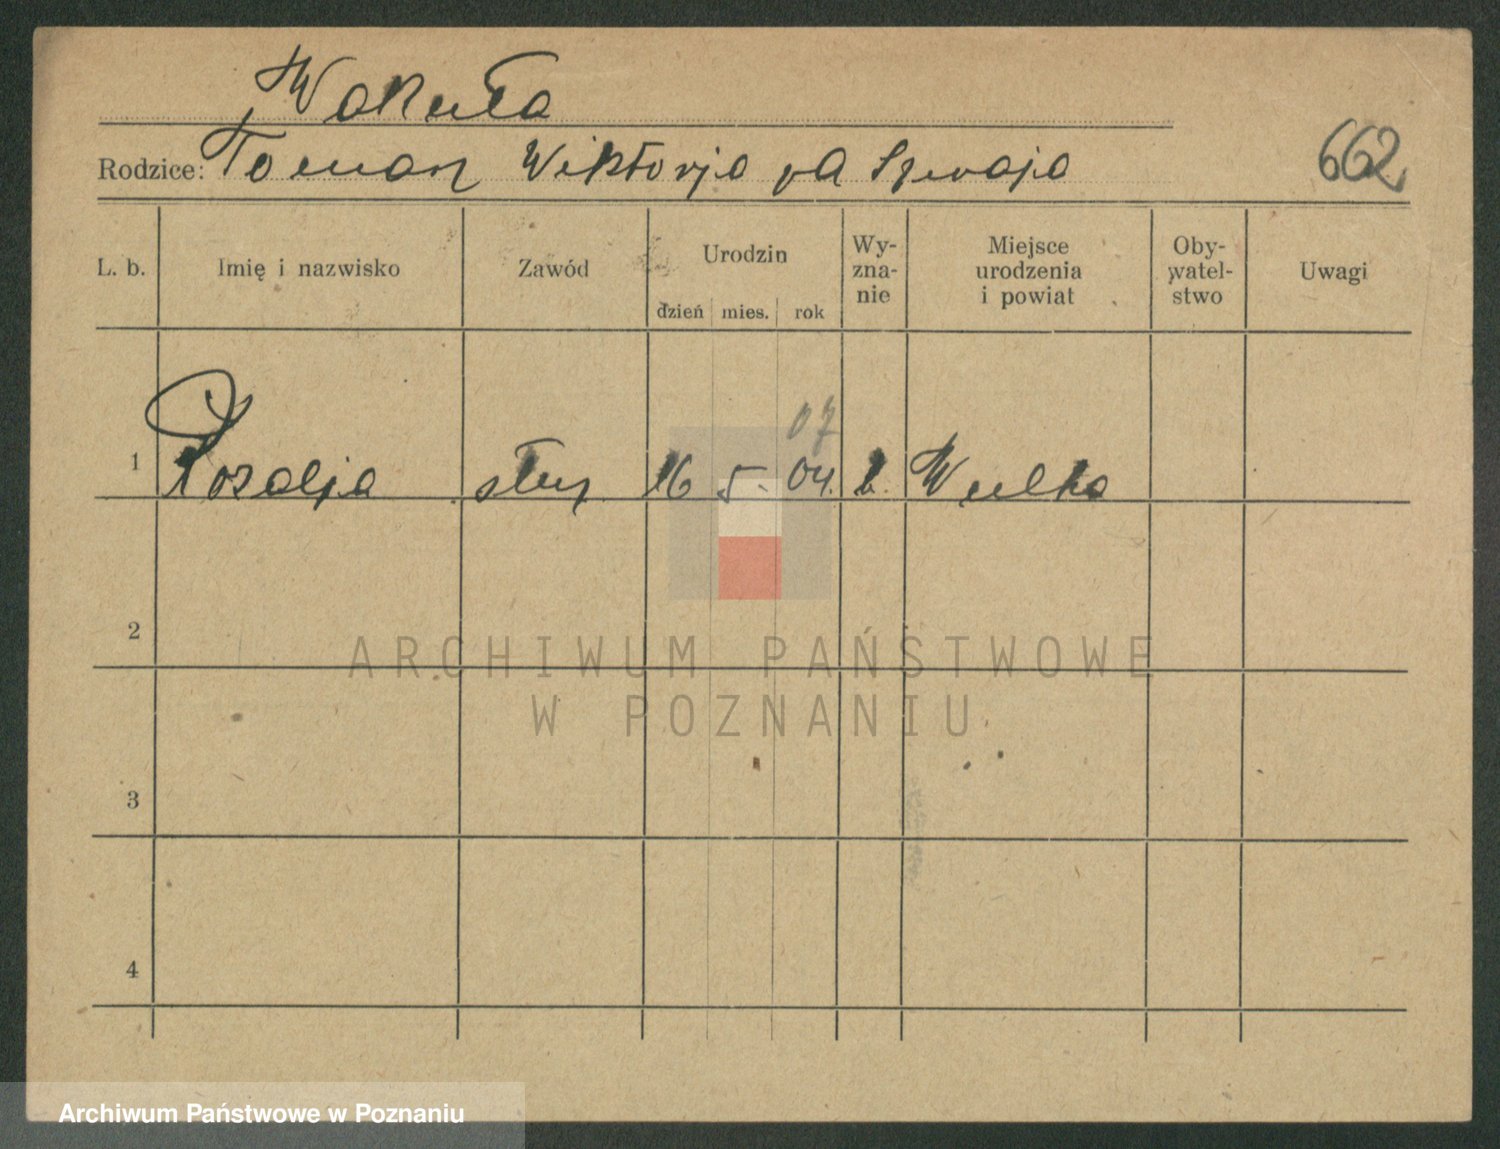 Wakuła
Rodzice: Tomasz Wiktorja zd Szwaja
662
L. b. Imię i nazwisko Zawód Urodzin dzień mies. rok Wy-zna-nie Miejsce urodzenia i powiat Oby-watel-stwo Uwagi
07
1 Rozalja służ 16 5. 04. k. Wulka
2
ARCHIWUM PAŃSTWOWE
W POZNANIU
3
4
Archiwum Państwowe w Poznaniu